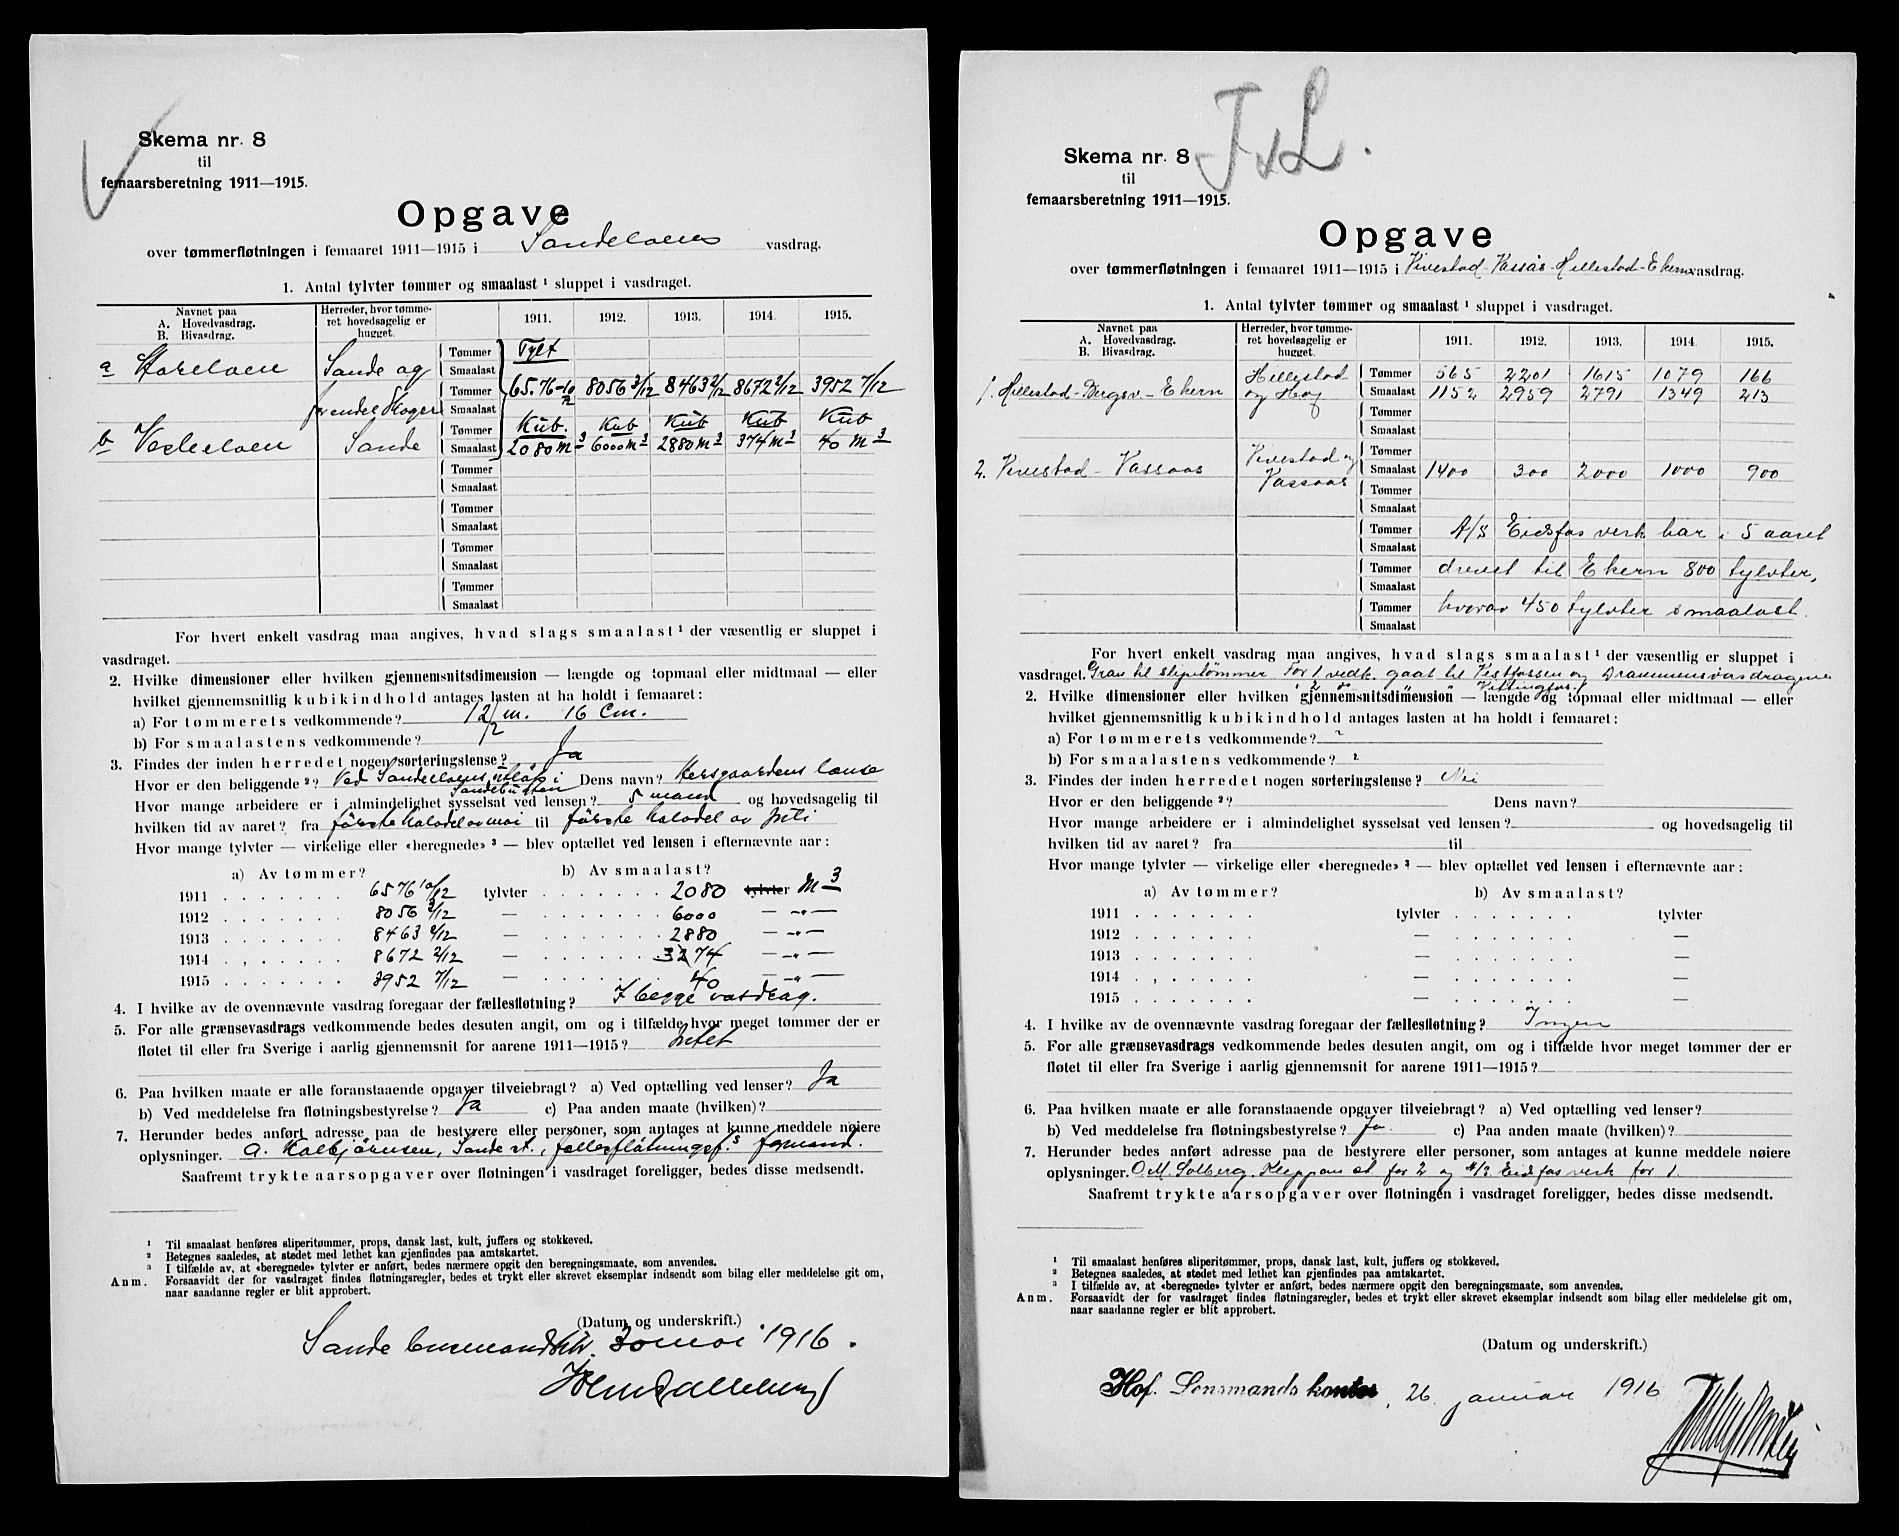 Skema nr. 8
til
femaarsberetning 1911—1915.
Opgave
over tømmerfløtningen i femaaret 1911—1915 i Sandeelvens vasdrag.
1. Antal tylvter tømmer og smaalast ¹ sluppet i vasdraget.
Navnet paa
A. Hovedvasdrag.
B. Bivasdrag.
Herreder, hvor tømme-
ret hovedsagelig er
hugget.
1911. 1912. 1913. 1914. 1915.
a Storelven Sande og Tømmer Tylt
Smaalast
for endel Skoger Tømmer 6576 10/12 8056 3/12 8463 2/12 8672 2/12 3952 7/12
Smaalast
b Vesleelven Sande Tømmer Kub. Kub Kub Kub Kub
Smaalast 2080 m3 6000 m3 2880 m3 374 m3 40 m3
Tømmer
Smaalast
Tømmer
Smaalast
Tømmer
Smaalast
Tømmer
Smaalast
For hvert enkelt vasdrag maa angives, hvad slags smaalast ¹ der væsentlig er sluppet i
vasdraget.
2. Hvilke dimensioner eller hvilken gjennemsnitsdimension — længde og topmaal eller midtmaal — eller
hvilket gjennemsnitlig kubikindhold antages lasten at ha holdt i femaaret:
a) For tømmerets vedkommende? 12/12 m. 16 Cm.
b) For smaalastens vedkommende?
3. Findes der inden herredet nogen sorteringslense? Ja
Hvor er den beliggende ²? Ved Sandeelvens utløp i Sandebugten Dens navn? Hersgaardens lænse
Hvor mange arbeidere er i almindelighet sysselsat ved lensen? 5 mand og hovedsagelig til
hvilken tid av aaret? fra første halvdel av mai til første halvdel av juli
Hvor mange tylvter — virkelige eller «beregnede» ³ — blev optællet ved lensen i efternævnte aar:
a) Av tømmer? b) Av smaalast?
1911 . . . . . . . 6576 10/12 tylvter . . . . . . . 2080 tylvter M 3
1912 . . . . . . . 8056 3/12 — . . . . . . . 6000 — -"-
1913 . . . . . . . 8463 2/12 — . . . . . . . 2880 — -"-
1914 . . . . . . . 8672 2/12 — . . . . . . . 3274 — -"-
1915 . . . . . . . 3952 7/12 — . . . . . . . 40 — -"-
4. I hvilke av de ovennævnte vasdrag foregaar der fællesfløtning? I begge vasdrag.
5. For alle grænsevasdrags vedkommende bedes desuten angit, om og i tilfælde hvor meget tømmer der er
fløtet til eller fra Sverige i aarlig gjennemsnit for aarene 1911—1915? Intet
6. Paa hvilken maate er alle foranstaaende opgaver tilveiebragt? a) Ved optælling ved lenser? Ja
b) Ved meddelelse fra fløtningsbestyrelse? Ja c) Paa anden maate (hvilken)?
7. Herunder bedes anført adresse paa de bestyrere eller personer, som antages at kunne meddele nøiere
oplysninger. A. Kolbjørnsen, Sande st., fællesfløtningsf.s formand.
Saafremt trykte aarsopgaver over fløtningen i vasdraget foreligger, bedes disse medsendt.
¹ Til smaalast henføres sliperitømmer, props, dansk last, kult, juffers og stokkeved.
² Betegnes saaledes, at stedet med lethet kan gjenfindes paa amtskartet.
³ I tilfælde av, at «beregnede» tylvter er anført, bedes nærmere opgit den beregningsmaate, som anvendes.
Anm. Forsaavidt der for vasdraget findes fløtningsregler, bedes et trykt eller skrevet eksemplar indsendt som bilag eller meddelelse git om,
naar saadanne regler er blit approbert.
(Datum og underskrift.)
Sande lensmandsktr. 30 mai 1916.

F.L.
Skema nr. 8
til
femaarsberetning 1911—1915.
Opgave
over tømmerfløtningen i femaaret 1911—1915 i Vivestad-Vassås-Hillestad-Ekern vasdrag.
1. Antal tylvter tømmer og smaalast ¹ sluppet i vasdraget.
Navnet paa
A. Hovedvasdrag.
B. Bivasdrag.
Herreder, hvor tømme-
ret hovedsagelig er
hugget.
1911. 1912. 1913. 1914. 1915.
1. Hillestad-Bergsv-Ekern Hillestad Tømmer 565 2201 1615 1079 166
og Hof Smaalast 1152 2959 2791 1349 213
Tømmer
Smaalast
2. Vivestad - Vassaas Vivestad og Tømmer
Vassaas Smaalast 1400 300 2000 1000 900
Tømmer
Smaalast
Tømmer A/S Eidsfos verk har i 5 aaret
Smaalast
Tømmer drevet til Ekern 800 tylvter,
Smaalast
Tømmer hvorav 450 tylvter smaalast.
Smaalast
For hvert enkelt vasdrag maa angives, hvad slags smaalast ¹ der væsentlig er sluppet i
vasdraget. Gran til slipetømmer For 1 vedk. gaat til Vestfossen og Drammensvasdragene
" 2 " " " Vittingfos.
2. Hvilke dimensioner eller hvilken gjennemsnitsdimension — længde og topmaal eller midtmaal — eller
hvilket gjennemsnitlig kubikindhold antages lasten at ha holdt i femaaret:
a) For tømmerets vedkommende? ?
b) For smaalastens vedkommende? ?
3. Findes der inden herredet nogen sorteringslense? Nei
Hvor er den beliggende ²? Dens navn?
Hvor mange arbeidere er i almindelighet sysselsat ved lensen? og hovedsagelig til
hvilken tid av aaret? fra til
Hvor mange tylvter — virkelige eller «beregnede» ³ — blev optællet ved lensen i efternævnte aar:
a) Av tømmer? b) Av smaalast?
1911 . . . . . . . tylvter . . . . . . . tylvter
1912 . . . . . . . — . . . . . . . —
1913 . . . . . . . — . . . . . . . —
1914 . . . . . . . — . . . . . . . —
1915 . . . . . . . — . . . . . . . —
4. I hvilke av de ovennævnte vasdrag foregaar der fællesfløtning? Ingen
5. For alle grænsevasdrags vedkommende bedes desuten angit, om og i tilfælde hvor meget tømmer der er
fløtet til eller fra Sverige i aarlig gjennemsnit for aarene 1911—1915?
6. Paa hvilken maate er alle foranstaaende opgaver tilveiebragt? a) Ved optælling ved lenser?
b) Ved meddelelse fra fløtningsbestyrelse? Ja. c) Paa anden maate (hvilken)?
7. Herunder bedes anført adresse paa de bestyrere eller personer, som antages at kunne meddele nøiere
oplysninger. O. M. Solberg, Kleppan st. for 2 og A/S Eidsfos verk for 1.
Saafremt trykte aarsopgaver over fløtningen i vasdraget foreligger, bedes disse medsendt.
¹ Til smaalast henføres sliperitømmer, props, dansk last, kult, juffers og stokkeved.
² Betegnes saaledes, at stedet med lethet kan gjenfindes paa amtskartet.
³ I tilfælde av, at «beregnede» tylvter er anført, bedes nærmere opgit den beregningsmaate, som anvendes.
Anm. Forsaavidt der for vasdraget findes fløtningsregler, bedes et trykt eller skrevet eksemplar indsendt som bilag eller meddelelse git om,
naar saadanne regler er blit approbert.
(Datum og underskrift.)
Hof. Lensmandskontor, 26. januar 1916